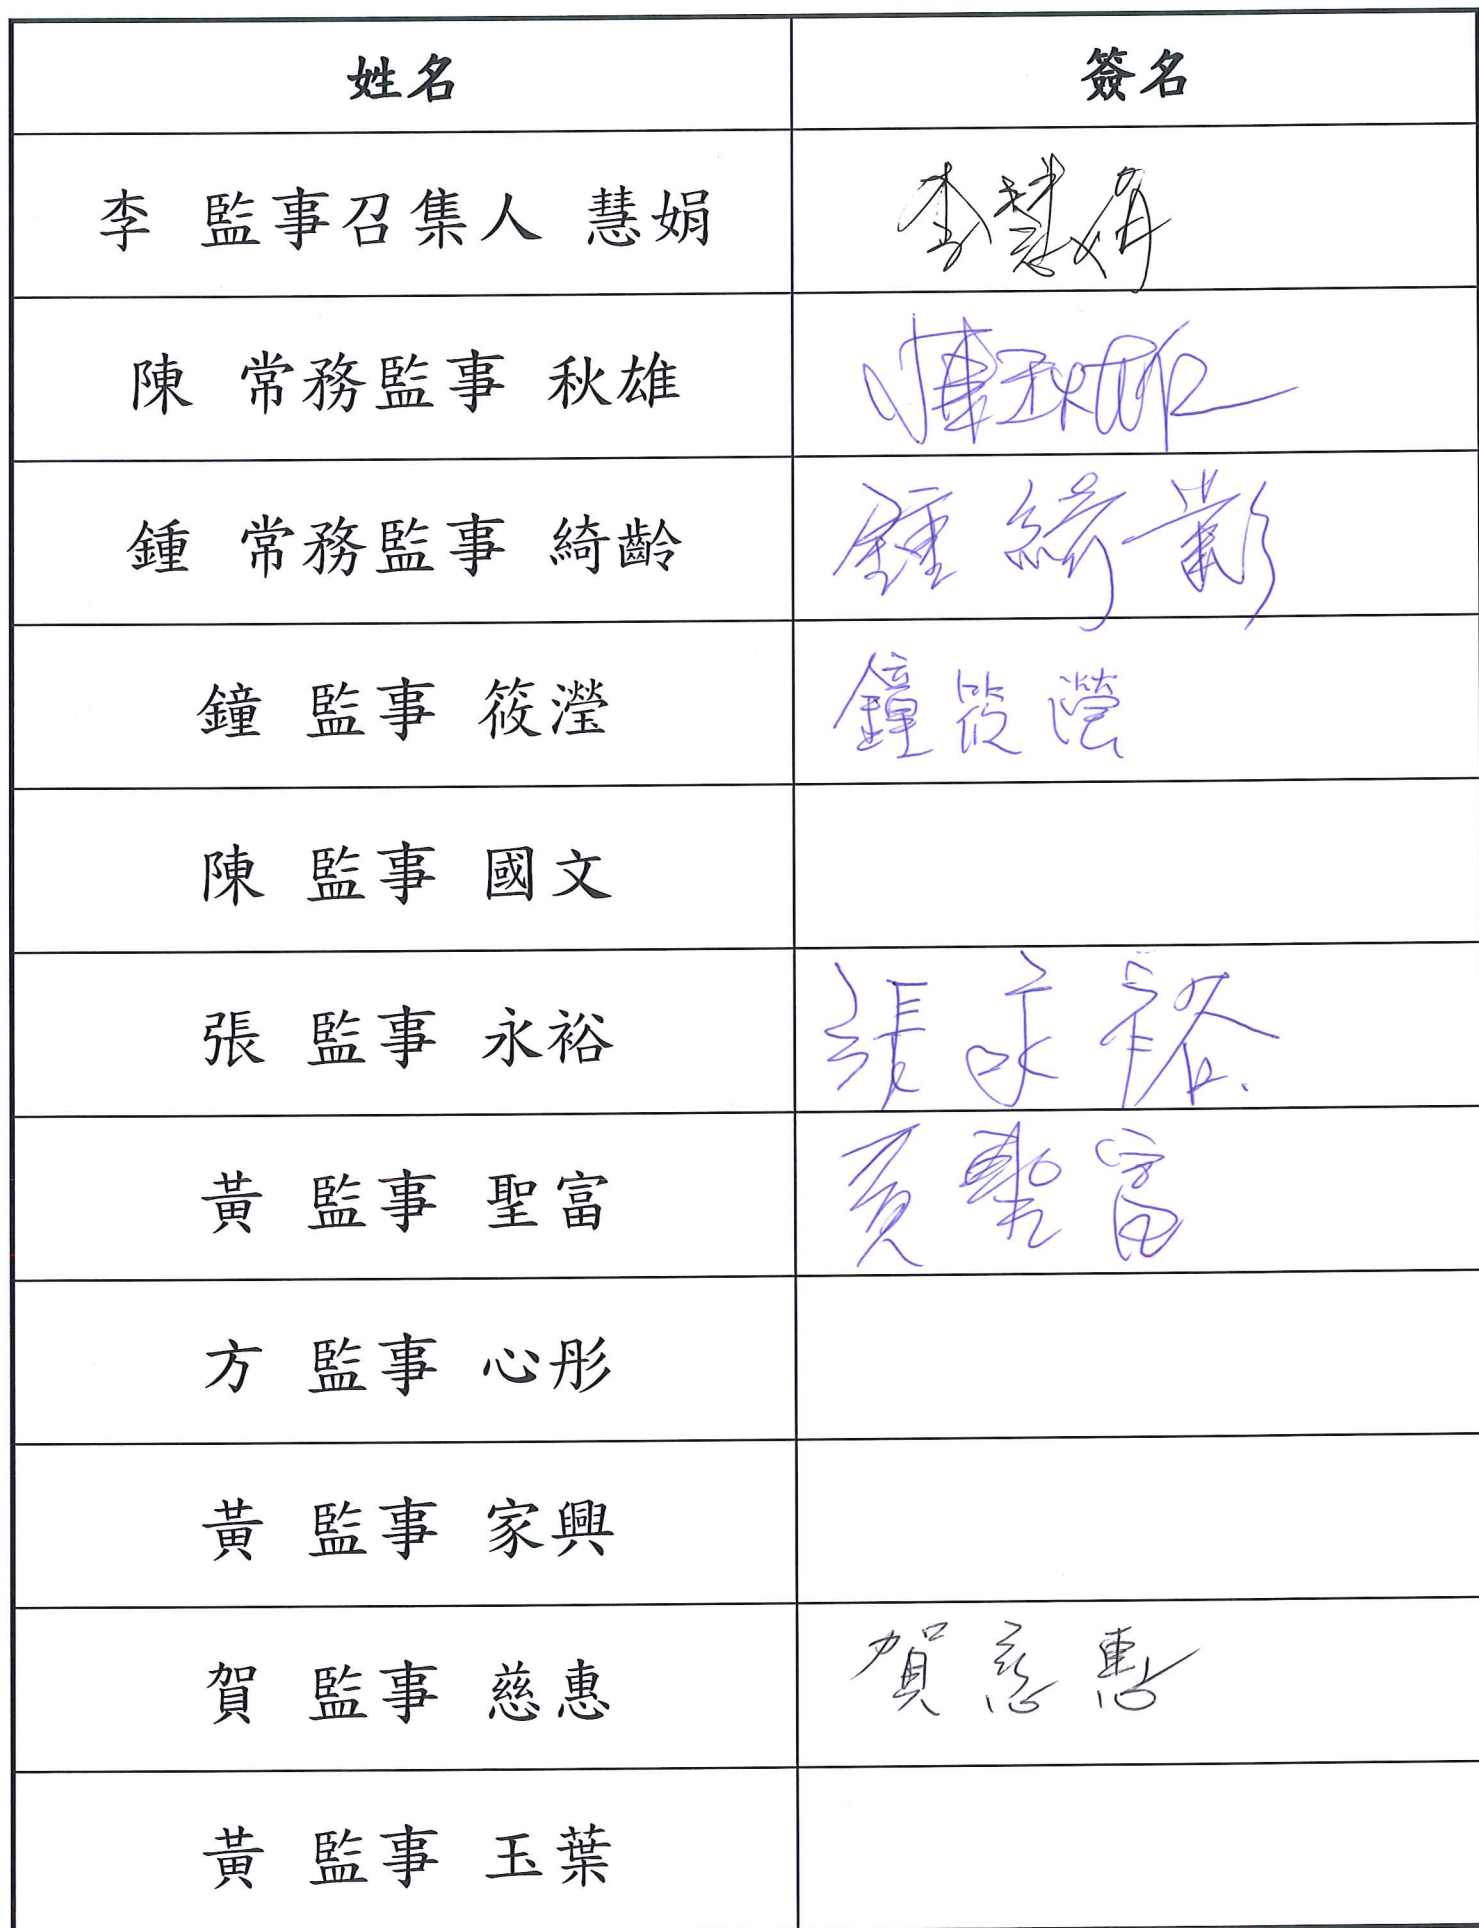 姓名 簽名
李 監事召集人 慧娟 李慧娟
陳 常務監事 秋雄 陳秋雄
鍾 常務監事 綺齡 鍾綺齡
鐘 監事 筱瀅 鐘筱瀅
陳 監事 國文
張 監事 永裕 張永裕
黃 監事 聖富 黃聖富
方 監事 心彤
黃 監事 家興
賀 監事 慈惠 賀慈惠
黃 監事 玉葉